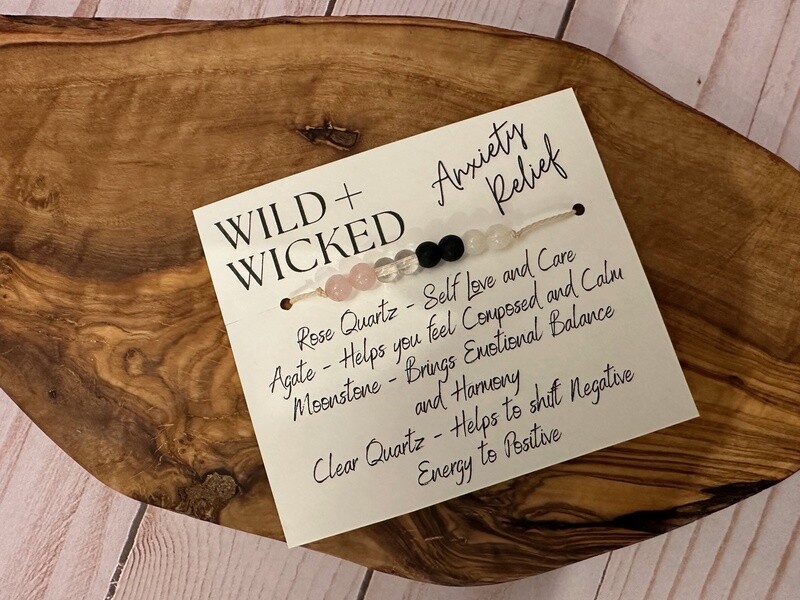 WILD +
WICKED
Anxiety
Relief
Rose Quartz - Self Love and Care
Agate - Helps you feel Composed and Calm
Moonstone - Brings Emotional Balance
and Harmony
Clear Quartz - Helps to shift Negative
Energy to Positive